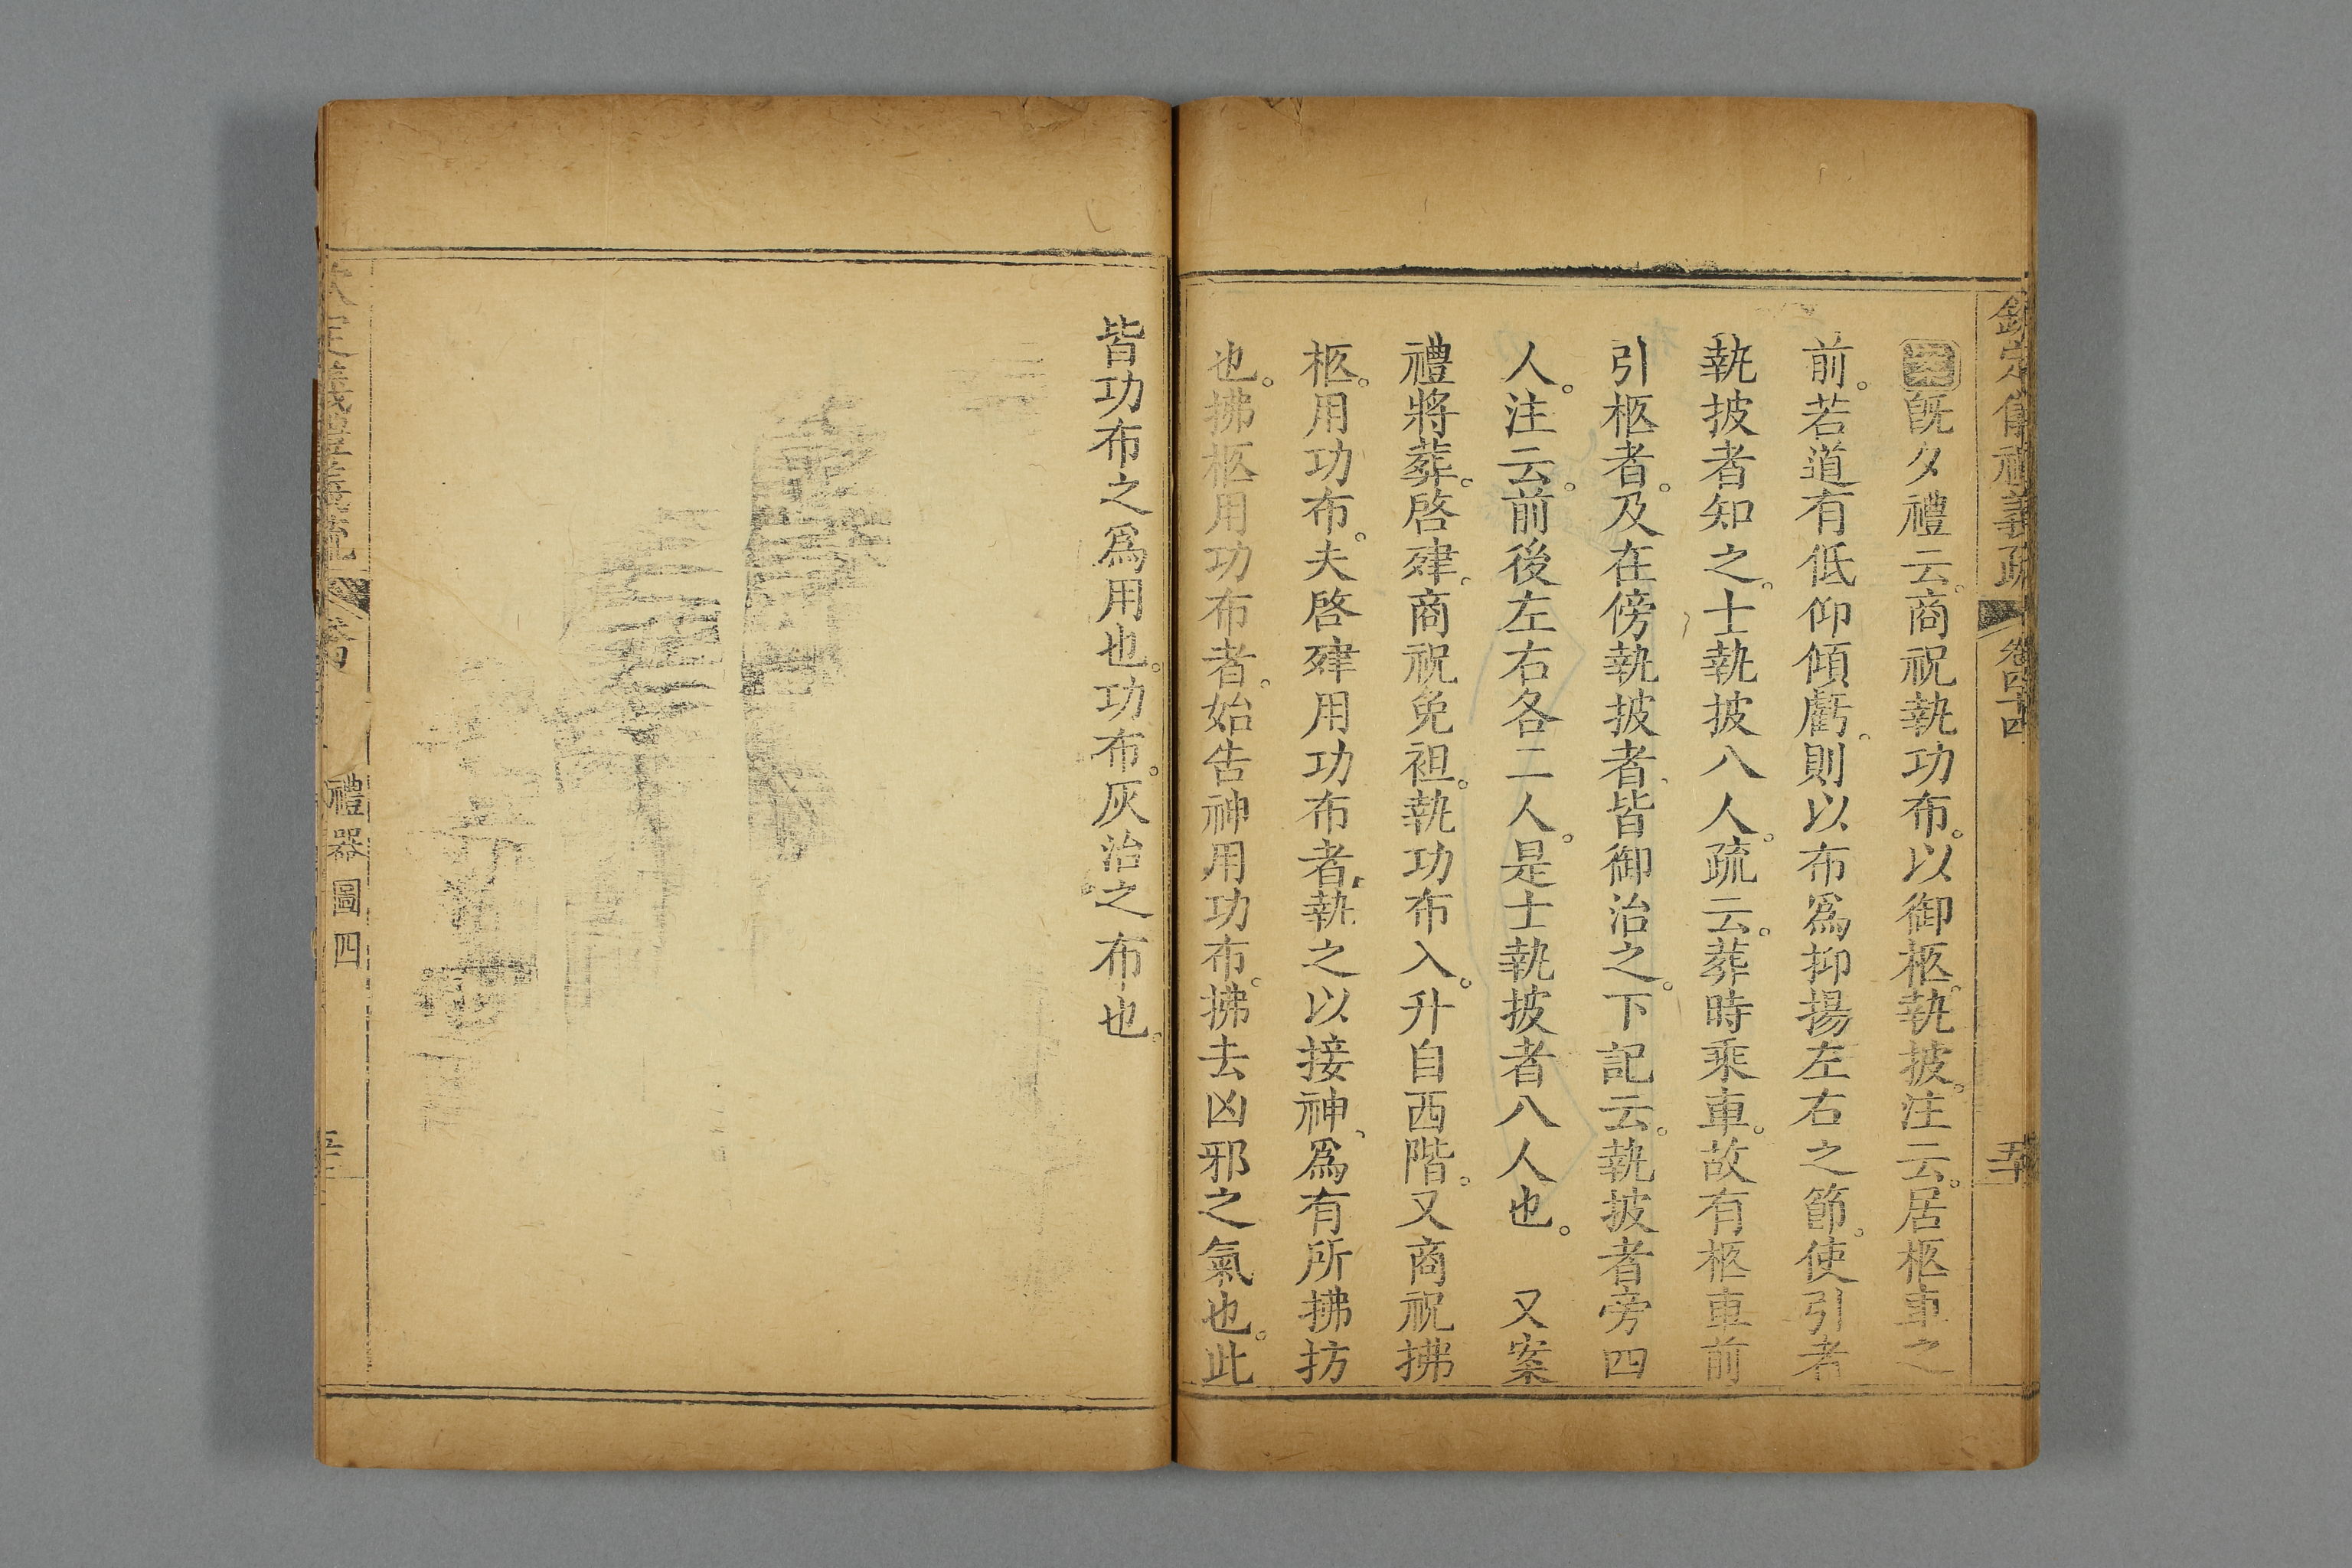 欽定儀禮義疏 卷四十四 五十
案既夕禮云。商祝執功布。以御柩。執披。注云。居柩車之
前。若道有低仰傾虧。則以布爲抑揚左右之節。使引者
執披者知之。士執披八人。疏云。葬時乘車。故有柩車前
引柩者。及在傍執披者、皆御治之。下記云。執披者旁四
人。注云。前後左右各二人。是士執披者八人也。 又案
禮將葬。啓殔。商祝免袒。執功布入。升自西階。又商祝拂
柩。用功布。夫啓殔用功布者、執之以接神、爲有所拂扐
也。拂柩用功布者。始告神用功布。拂去凶邪之氣也。此
皆功布之爲用也。功布。灰治之。布也。
禮器圖四